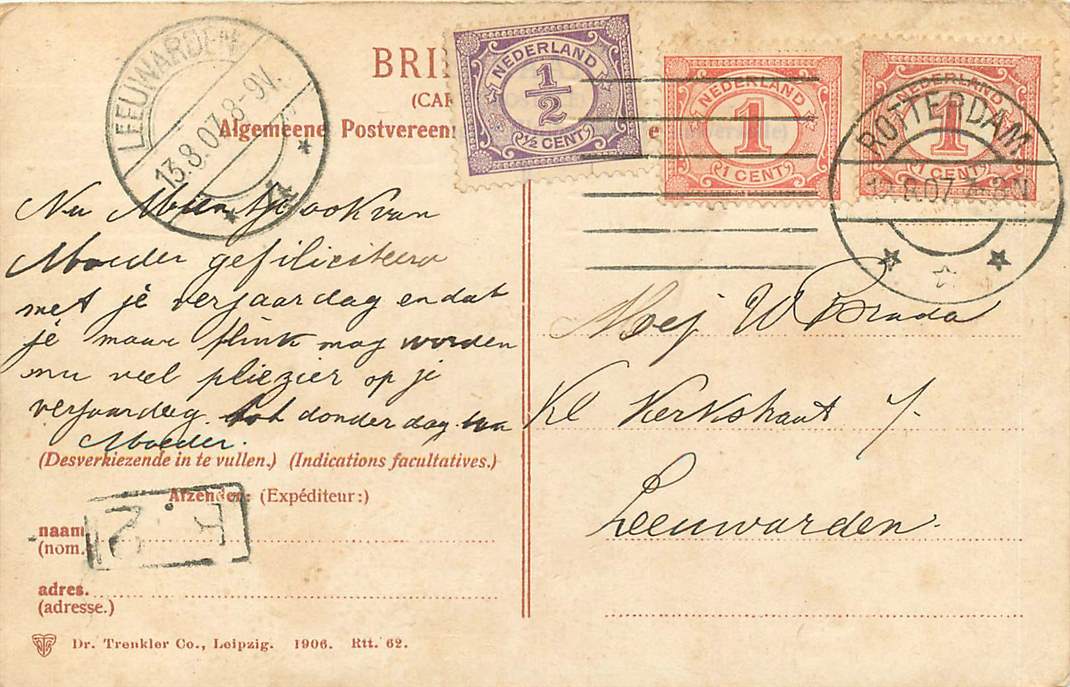 LEEUWARDEN
13.8.07. 8-9V.
BRI
(CAR
Algemeene Postvereen
e
NEDERLAND
1/2
1/2 CENT
NEDERLAND
1
1 CENT
NEDERLAND
1
1 CENT
ROTTERDAM
Nu Mien ook van
Moeder gefiliciteerd
met je verjaardag en dat
je maar flink mag worden
nu veel pliezier op je
verjaardag. tot donderdag
Moeder.
Mej W Breda
Kl Kerkstraat
Leeuwarden.
(Desverkiezende in te vullen.) (Indications facultatives.)
Afzender: (Expéditeur:)
naam
(nom.
adres.
(adresse.)
Dr. Trenkler Co., Leipzig. 1906. Rtt. 62.